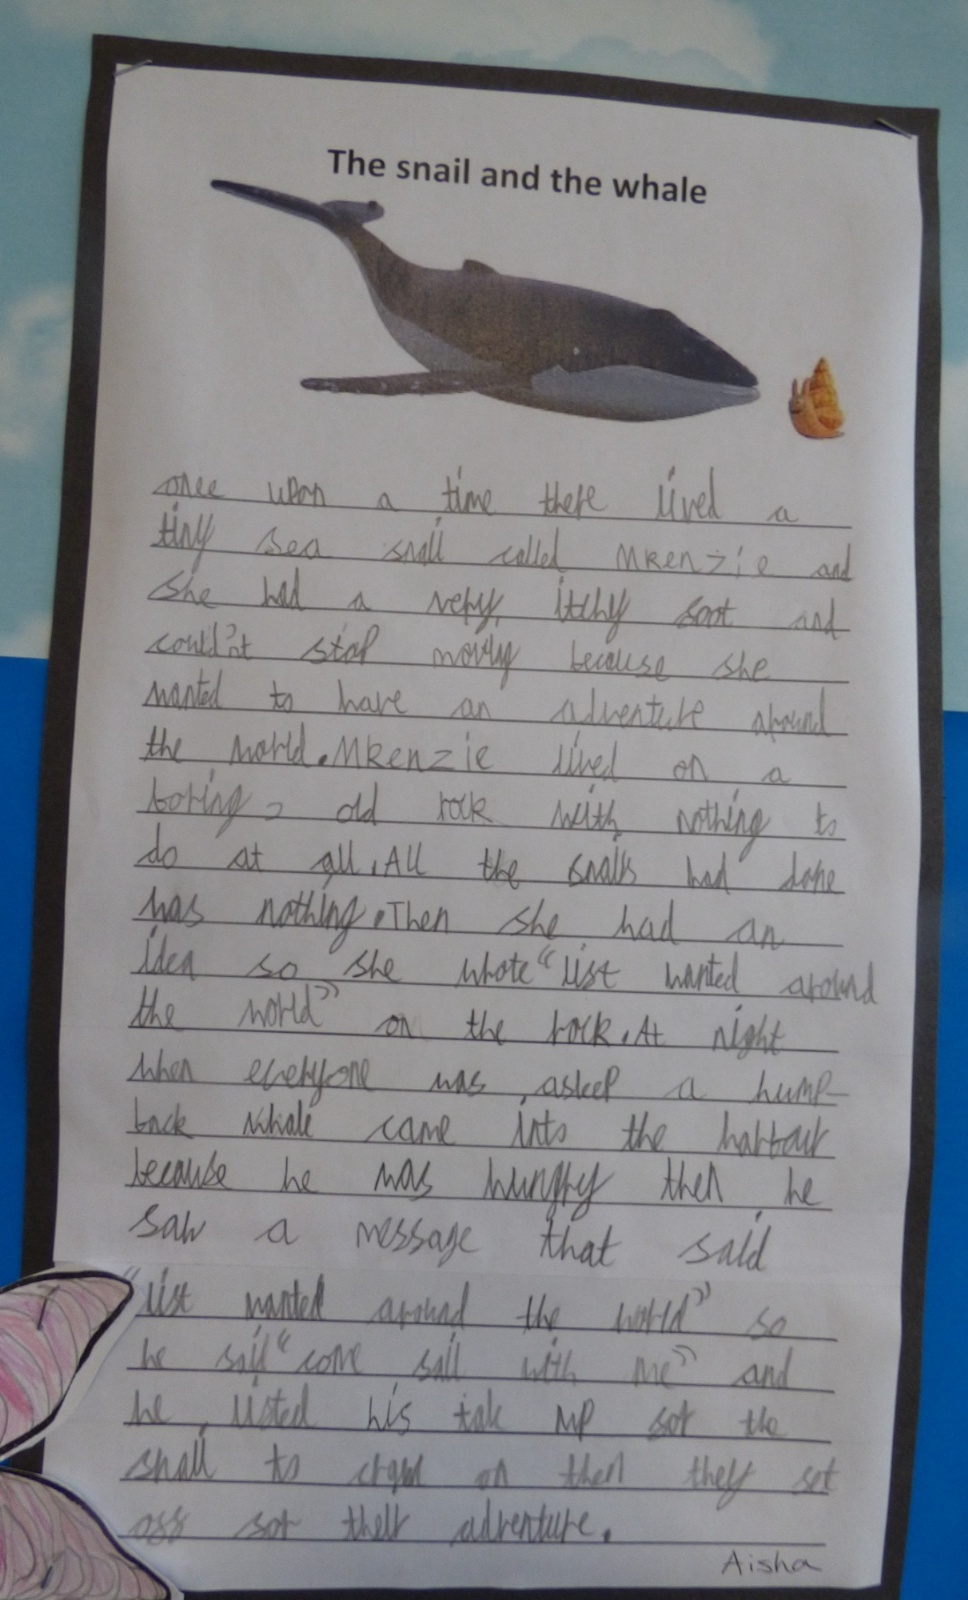 The snail and the whale
once upon a time there lived a
tiny sea snail called Mkenzie and
she had a very, itchy foot and
could'nt stop moving because she
wanted to have an adventure around
the world. Mkenzie lived on a
boring, old rock with nothing to
do at all. All the snails had done
was nothing. Then she had an
idea so she whote "list wanted around
the world" on the rock. At night
when everyone was asleep a hump-
back whale came into the harbour
because he was hungry then he
saw a message that said
"list wanted around the world" so
he said "come sail with me" and
he listed his tale up for the
snail to on then they set
off for their adventure.
Aisha